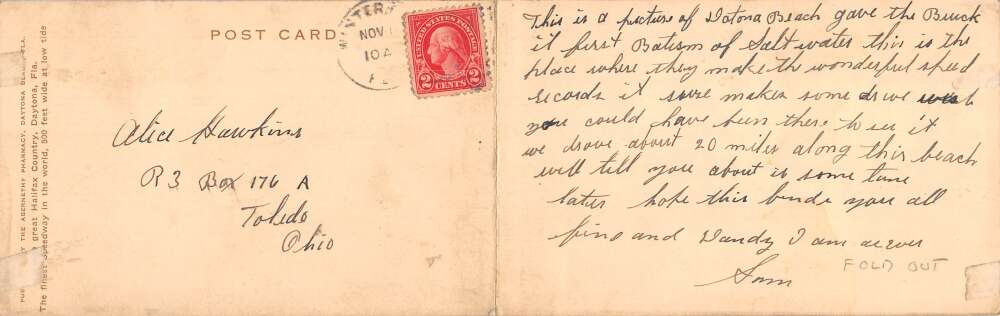 POST CARD
WINTER
NOV
10 A
FL
UNITED STATES POSTAGE
2 CENTS 2
Alice Hawkins
R 3 Box 176 A
Toledo
Ohio
THE ABERNETHY PHARMACY, DAYTONA BEACH, FLA.
great Halifax Country, Daytona, Fla.
The finest speedway in the world, 500 feet wide at low tide
This is a picture of Datona Beach gave the Buick
it first Batism of Salt water this is the
place where they make the wonderful speed
records it sure makes some drive wish
you could have been there to see it
we drove about 20 miles along this beach
will tell you about it some time
later hope this finds you all
fine and Dandy I am as ever
Sam
FOLD OUT